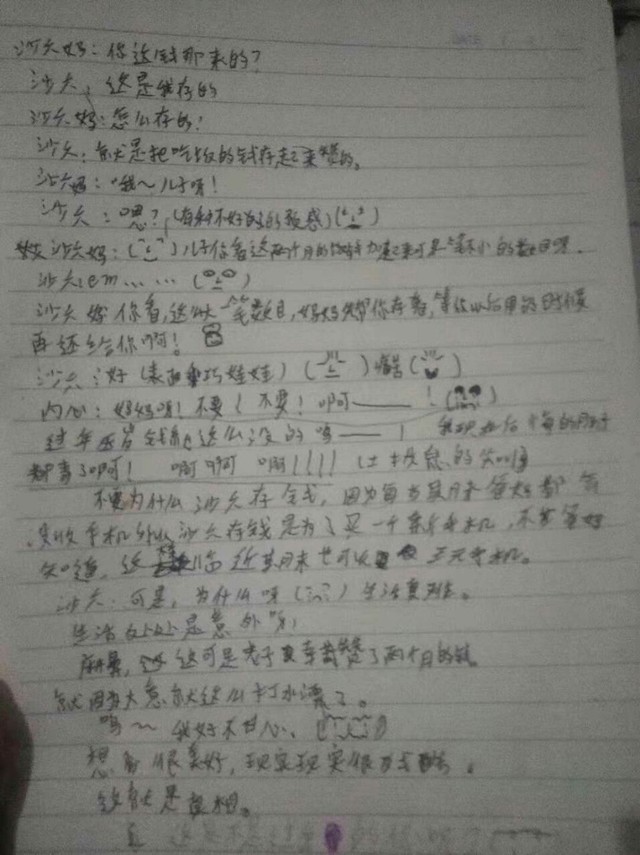 沙六妈：你这钱那来的？
沙六：这是我存的
沙六妈：怎么存的！
沙六：就是把吃饭的钱存起来攒的。
沙六妈：哦～儿子呀！
沙六：嗯？(有种不好的的预感)
沙六妈：儿子你看这两个月的 加起来可是一笔不小的数目呀.
沙六：em……
沙六妈 你看，这么大一笔数目，妈妈先帮你存着，等你以后用的时候
再还给你啊！
沙六：好(表面乖巧娃娃)
内心：妈妈呀！不要！不要！啊——！
过年压岁钱就这么没的呜——！我现在后悔的肠子
都青了啊！啊啊 啊！！！！(土拨鼠的尖叫)
不要为什么沙六存钱，因为每当 爸妈都
收手机 沙六存钱是为了买一个新手机，不当爸妈
知道，这样 临近期末也可以 玩手机。
沙六：可是，为什么呀 生活真难。
生活处处是意外呀！
麻蛋，这可是老子辛苦攒了两个月的钱。
就因为大意就这么打水漂了。
呜～ 我好不甘心、
想的很美好，现实现实很残酷。
这就是真相。